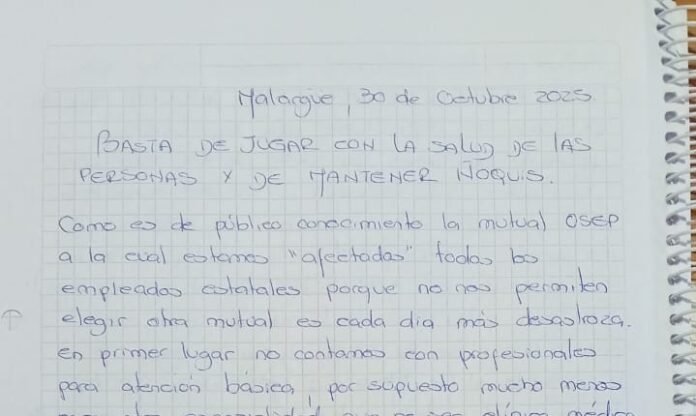 Malargüe, 30 de Octubre 2025.
BASTA DE JUGAR CON LA SALUD DE LAS
PERSONAS Y DE MANTENER ÑOQUIS.
Como es de público conocimiento la mutual OSEP
a la cual estamos "afectados" todos los
empleados estatales porque no nos permiten
elegir otra mutual es cada día más desastroza.
en primer lugar no contamos con profesionales
para atención básica, por supuesto mucho menos